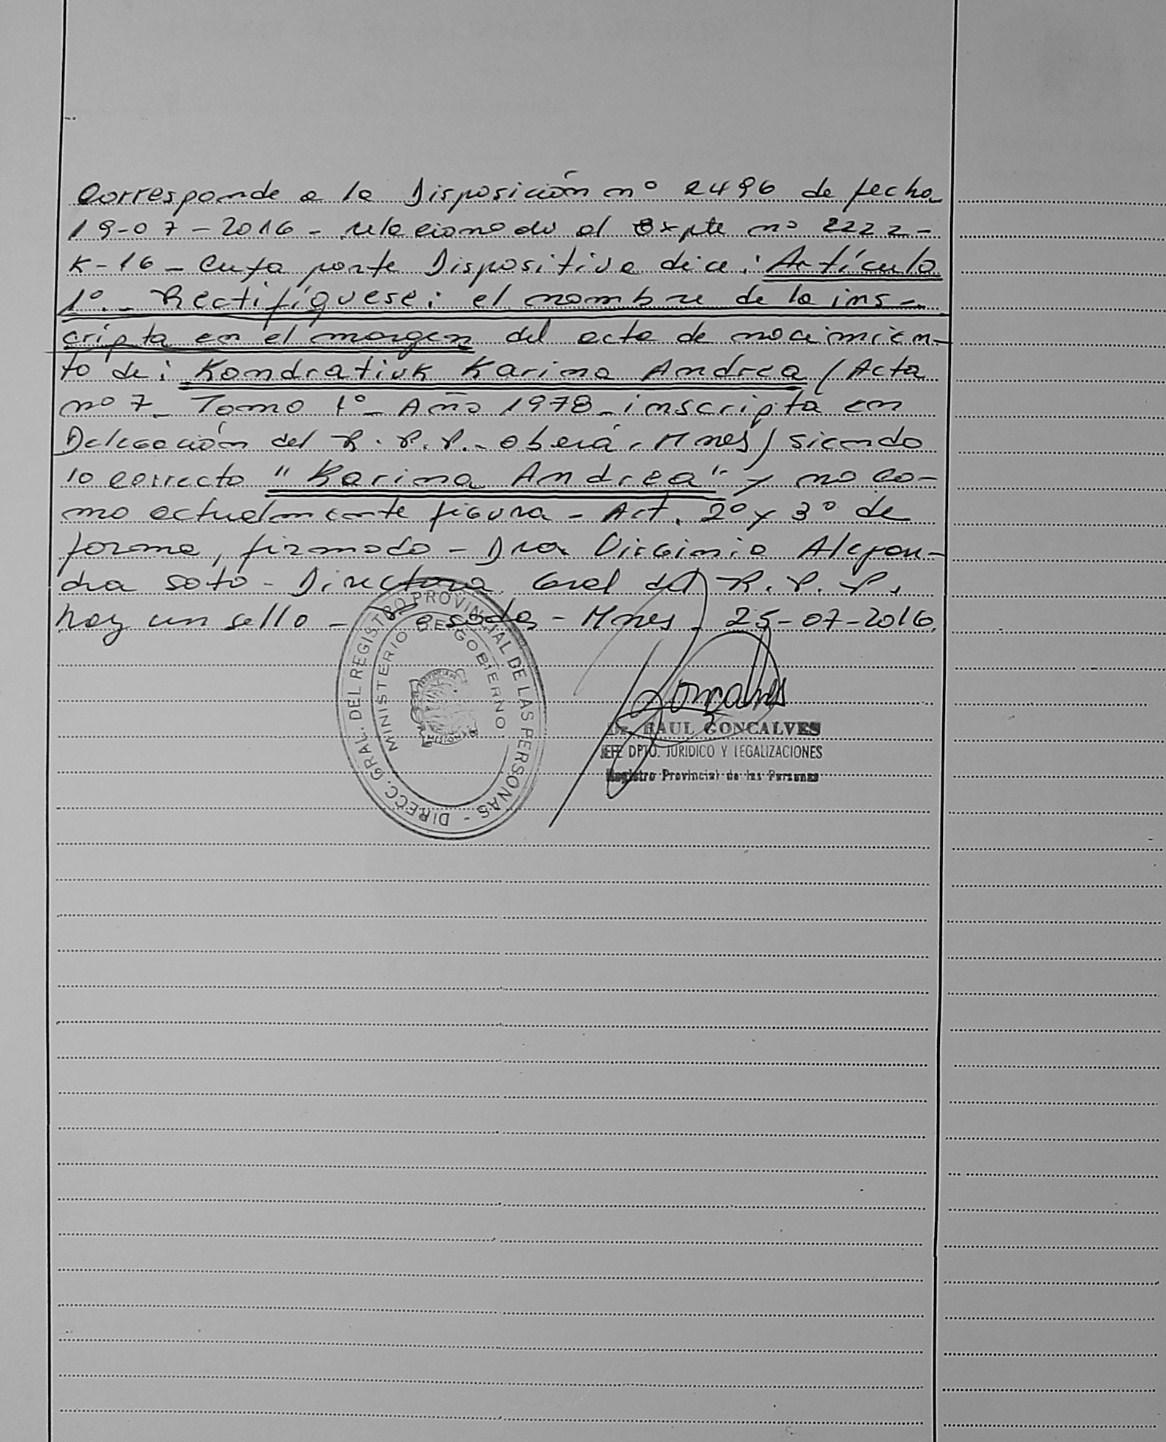 Corresponde a la Disposición nº 2496 de fecha
19-07-2016- relacionado al Expte nº 2222-
K-16- Cuya parte Dispositiva dice: Artículo
1º.- Rectifíquese: el nombre de la ins-
cripta en el margen del acta de nacimien-
to de: Kondratiuk Karina Andrea (Acta
nº 7- Tomo 1º- Año 1978- inscripta en
Delegación del R.P.P.- Oberá, Mnes) siendo
lo correcto "Karina Andrea" y no co-
mo actualmente figura- Art. 2º y 3º de
forma, firmado- Dra Virginia Alejan-
dra Soto- Directora Gral del R.P.P.
hay un sello- Posadas- Mnes- 25-07-2016.
DIRECC. GRAL. DEL REGISTRO PROVINCIAL DE LAS PERSONAS -
MINISTERIO DE GOBIERNO
Goncalves
Dr. RAUL GONCALVES
JEFE DPTO. JURIDICO Y LEGALIZACIONES
Registro Provincial de las Personas